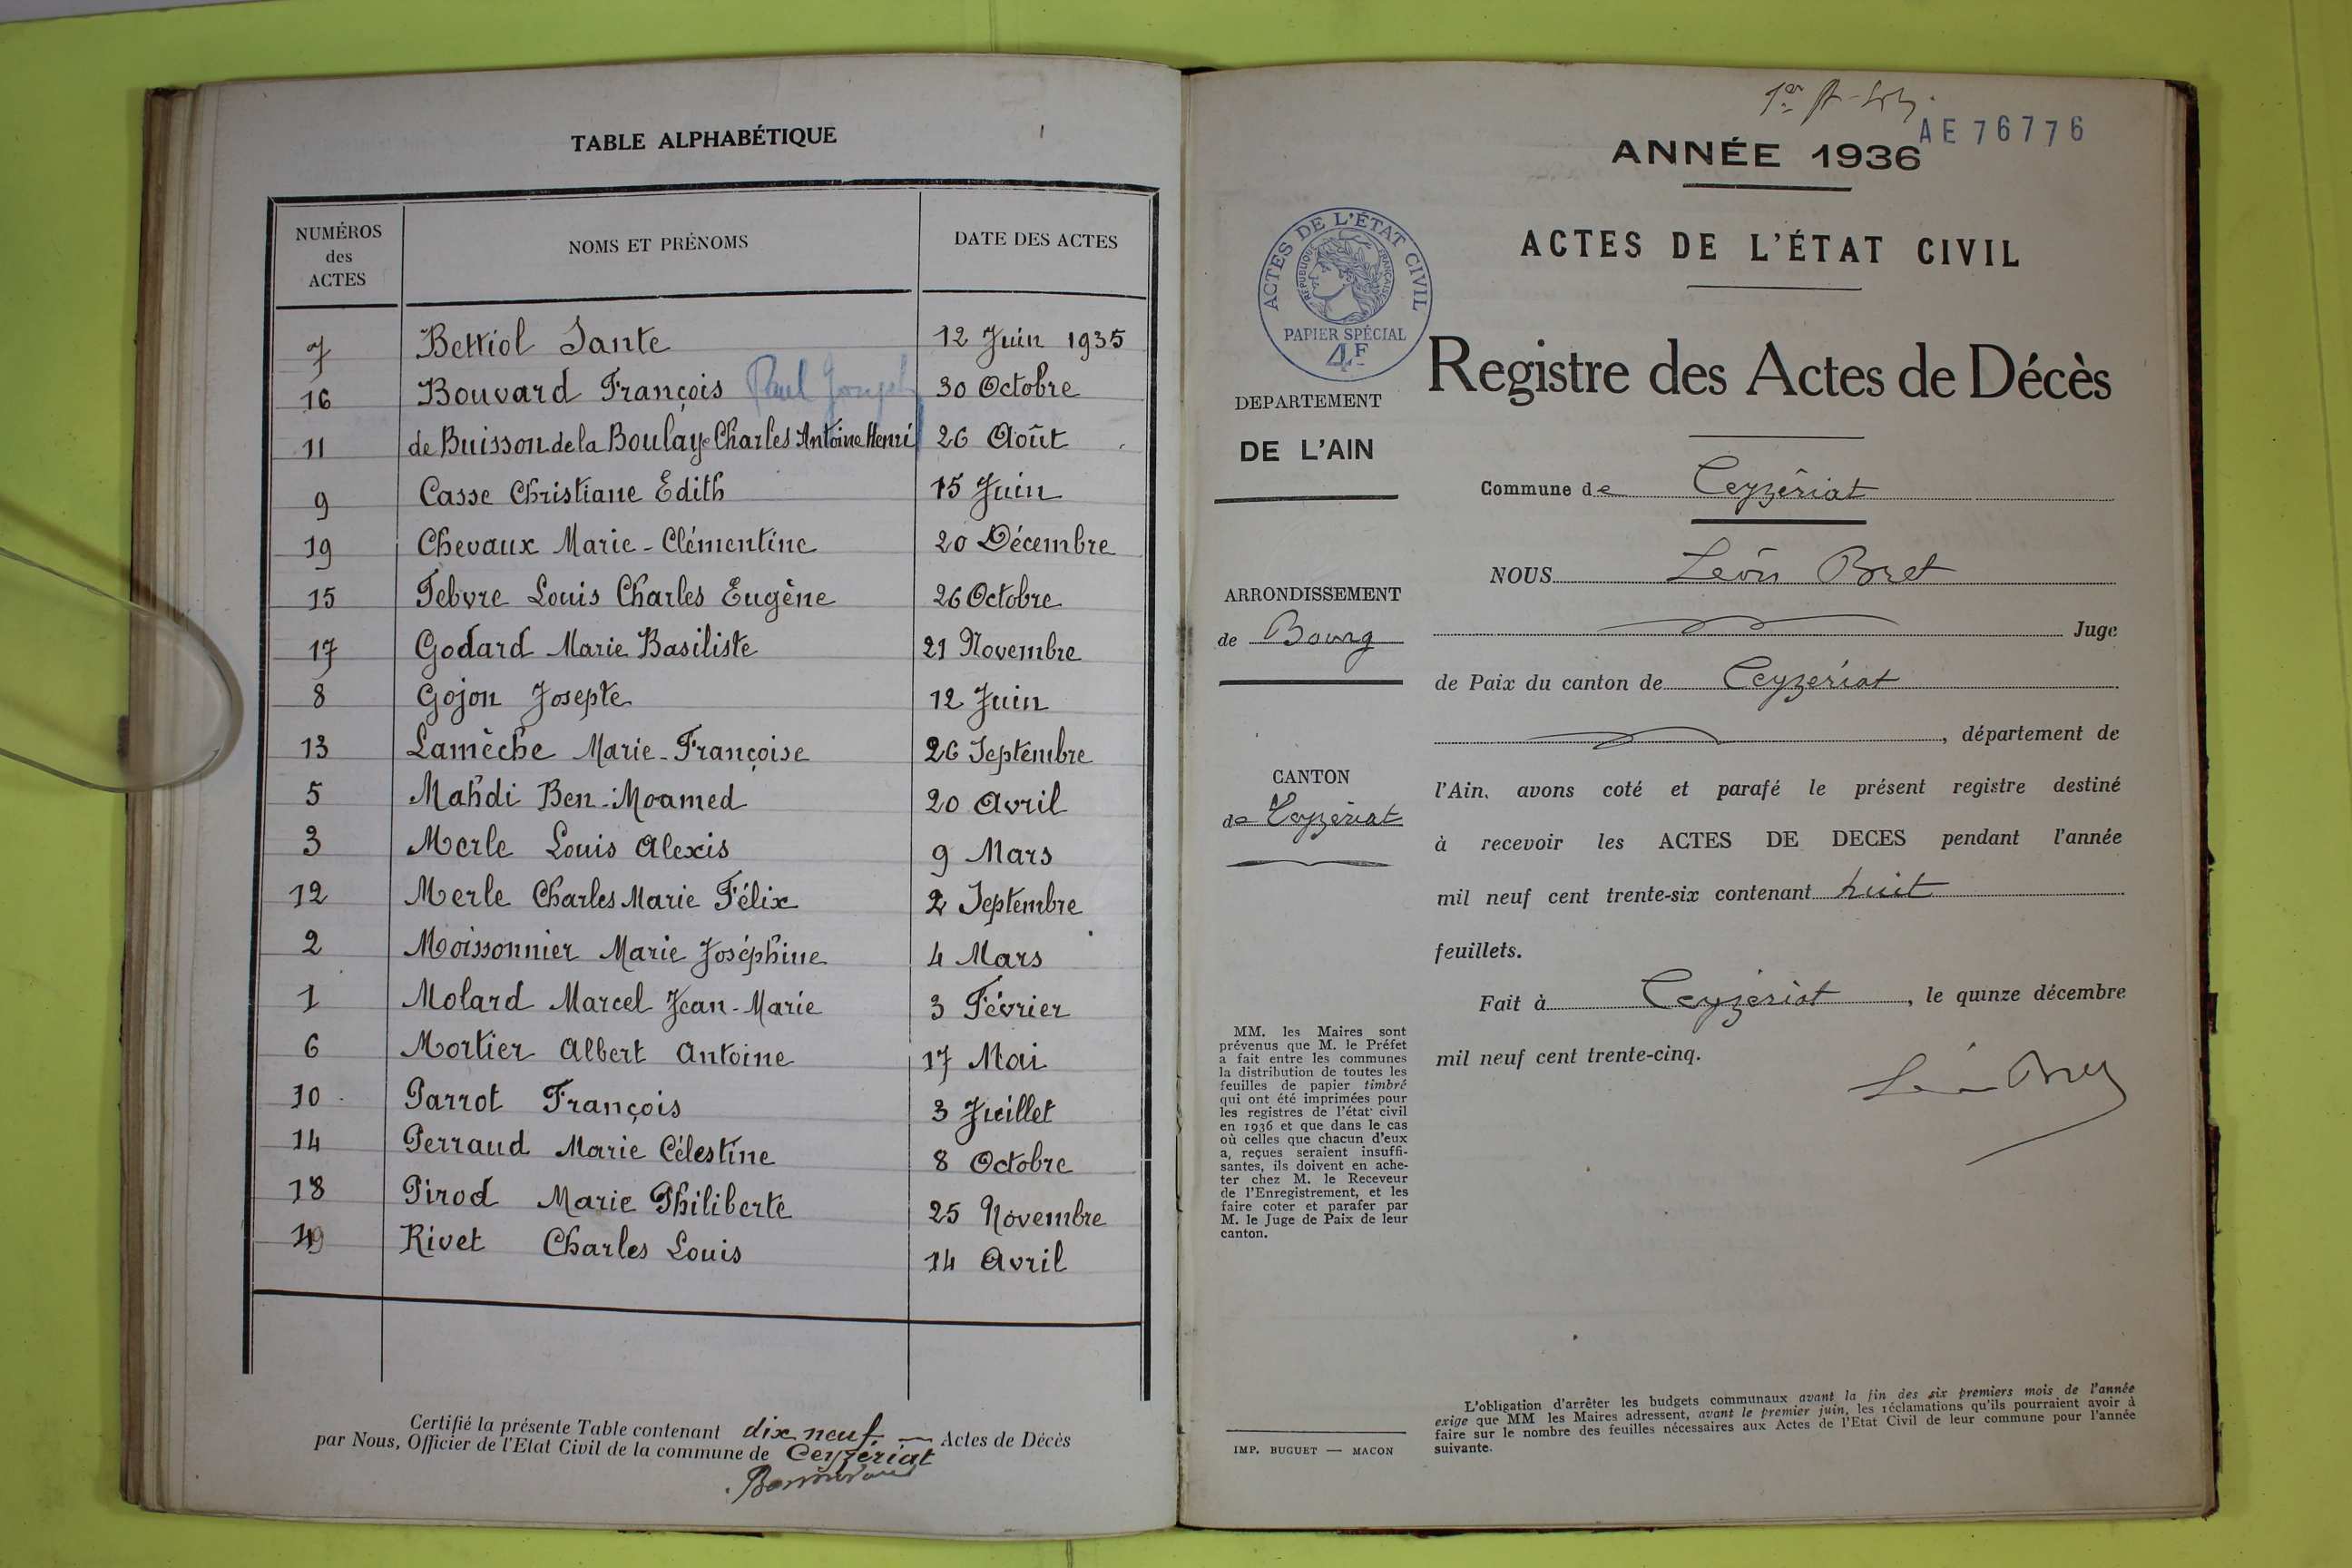 TABLE ALPHABÉTIQUE
NUMÉROS des ACTES
NOMS ET PRÉNOMS
DATE DES ACTES
7 Bettiol Sante 12 Juin 1935
16 Bouvard François Paul Joseph 30 Octobre
11 de Buisson de la Boulaye Charles Antoine Henri 26 Août
9 Casse Christiane Édith 15 Juin
19 Chevaux Marie-Clémentine 20 Décembre
15 Febvre Louis Charles Eugène 26 Octobre
17 Godard Marie Basiliste 21 Novembre
8 Gojon Josepte 12 Juin
13 Lamèche Marie-Françoise 26 Septembre
5 Mahdi Ben-Moamed 20 Avril
3 Merle Louis Alexis 9 Mars
12 Merle Charles Marie Félix 2 Septembre
2 Moissonnier Marie Joséphine 4 Mars
1 Molard Marcel Jean-Marie 3 Février
6 Mortier Albert Antoine 17 Mai
10 Parrot François 3 Juillet
14 Perraud Marie Célestine 8 Octobre
18 Pirod Marie Philiberte 25 Novembre
Rivet Charles Louis 14 Avril
Certifié la présente Table contenant dix neuf Actes de Décès
par Nous, Officier de l'Etat Civil de la commune de Ceyzériat
AE 76776
ANNÉE 1936
ACTES DE L'ÉTAT CIVIL
Registre des Actes de Décès
ACTES DE L'ÉTAT CIVIL
RÉPUBLIQUE FRANÇAISE
PAPIER SPÉCIAL
4F
DEPARTEMENT
DE L'AIN
ARRONDISSEMENT
de Bourg
CANTON
de Ceyzériat
MM. les Maires sont
prévenus que M. le Préfet
a fait entre les communes
la distribution de toutes les
feuilles de papier timbré
qui ont été imprimées pour
les registres de l'état civil
en 1936 et que dans le cas
où celles que chacun d'eux
a, reçues seraient insuffi-
santes, ils doivent en ache-
ter chez M. le Receveur
de l'Enregistrement, et les
faire coter et parafer par
M. le Juge de Paix de leur
canton.
IMP. BUGUET — MACON
Commune de Ceyzériat
NOUS Léon Bret
Juge
de Paix du canton de Ceyzériat
, département de
l'Ain, avons coté et parafé le présent registre destiné
à recevoir les ACTES DE DECES pendant l'année
mil neuf cent trente-six contenant huit
feuillets.
Fait à Ceyzériat, le quinze décembre
mil neuf cent trente-cinq.
Léon Bret
L'obligation d'arrêter les budgets communaux avant la fin des six premiers mois de l'année
exige que MM les Maires adressent, avant le premier juin, les réclamations qu'ils pourraient avoir à
faire sur le nombre des feuilles nécessaires aux Actes de l'Etat Civil de leur commune pour l'année
suivante.